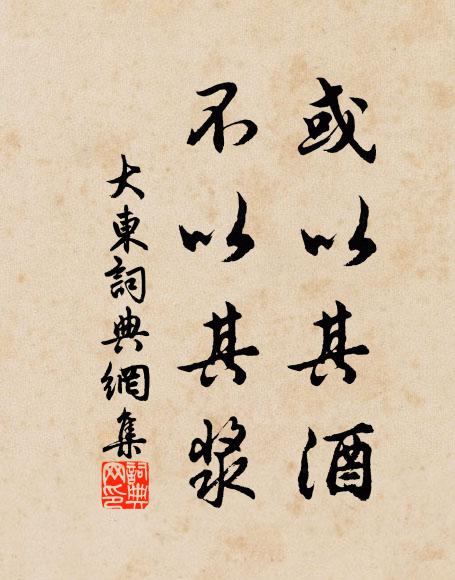 或以其酒
不以其漿
大東詞典網集
詞典
网印